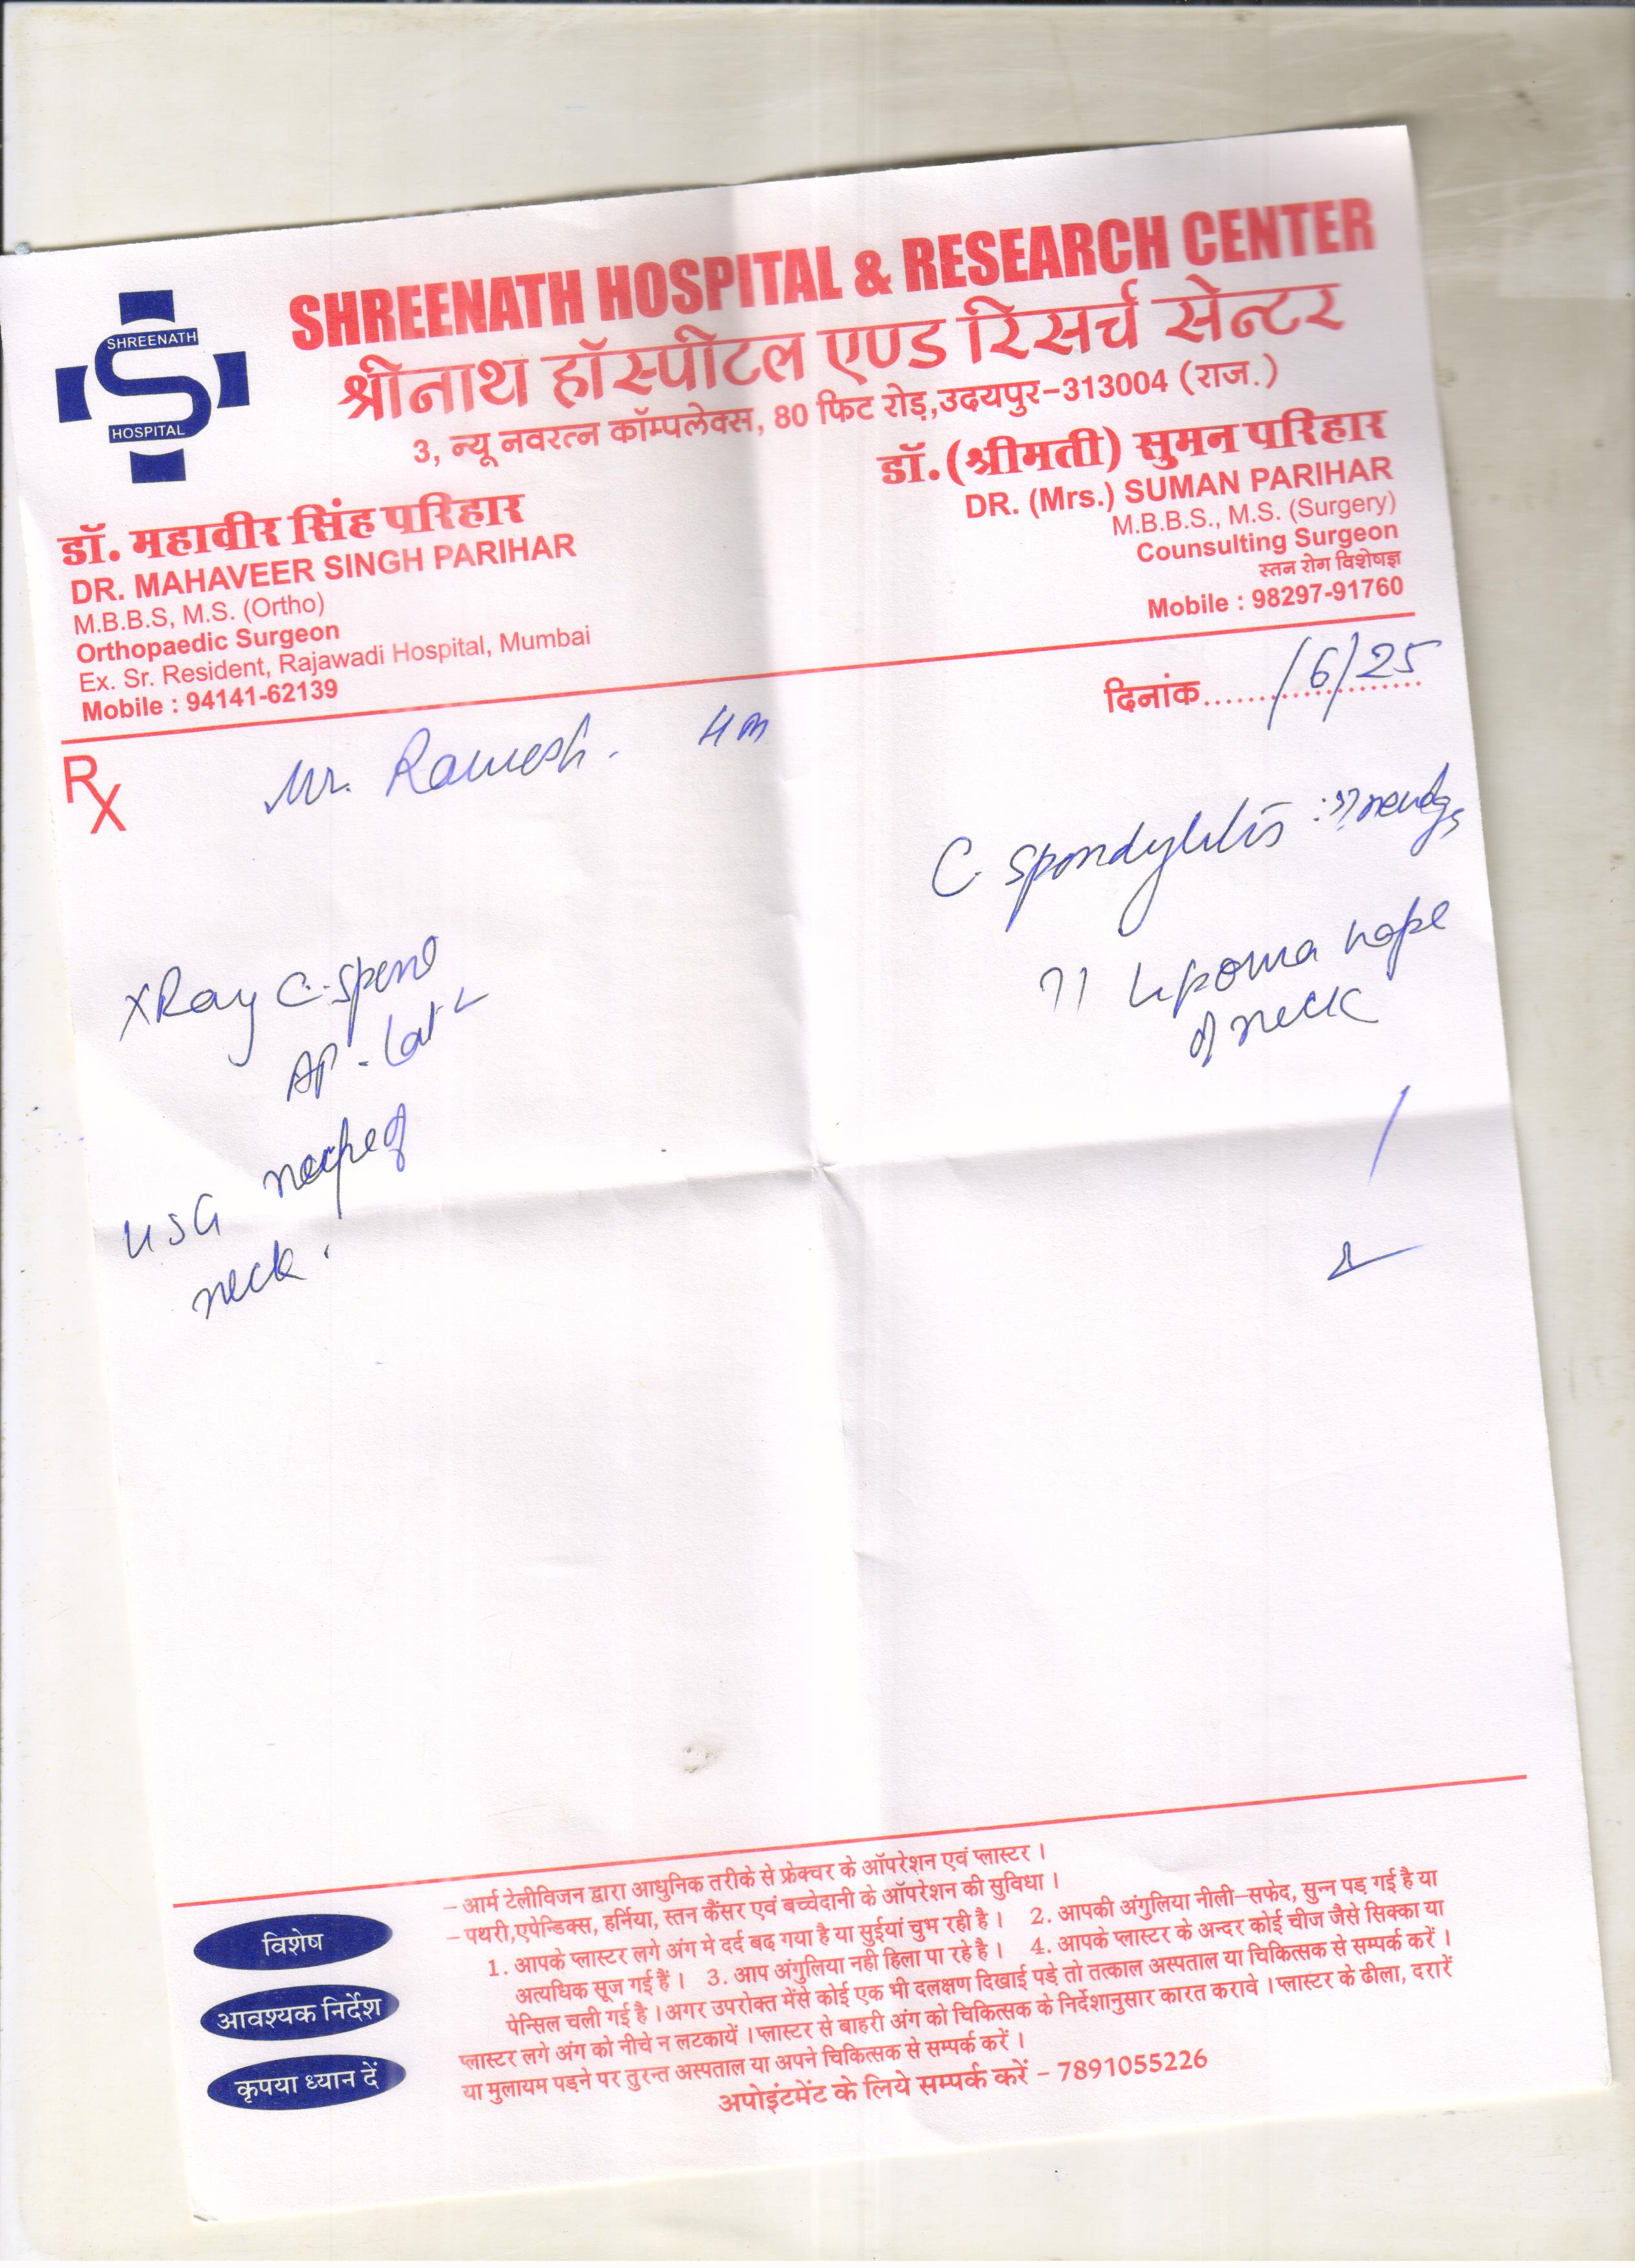 SHREENATH
HOSPITAL
SHREENATH HOSPITAL & RESEARCH CENTER
श्रीनाथ हॉस्पीटल एण्ड रिसर्च सेन्टर
3, न्यू नवरत्न कॉम्पलेक्स, 80 फिट रोड़,उदयपुर-313004 (राज.)
डॉ. महावीर सिंह परिहार
DR. MAHAVEER SINGH PARIHAR
M.B.B.S, M.S. (Ortho)
Orthopaedic Surgeon
Ex. Sr. Resident, Rajawadi Hospital, Mumbai
Mobile : 94141-62139
डॉ.(श्रीमती) सुमन परिहार
DR. (Mrs.) SUMAN PARIHAR
M.B.B.S., M.S. (Surgery)
Counsulting Surgeon
स्तन रोग विशेषज्ञ
Mobile : 98297-91760
दिनांक.................... /6/25
Rx
Mr. Ramesh.
C. spondylitis
?? Lipoma nape
of neck
XRay C. Spine
AP - Lat
USG nape of
neck.
विशेष
– आर्म टेलीविजन द्वारा आधुनिक तरीके से फ्रेक्चर के ऑपरेशन एवं प्लास्टर ।
– पथरी,एपेन्डिक्स, हर्निया, स्तन कैंसर एवं बच्चेदानी के ऑपरेशन की सुविधा ।
आवश्यक निर्देश
1. आपके प्लास्टर लगे अंग मे दर्द बढ़ गया है या सुईयां चुभ रही है । 2. आपकी अंगुलिया नीली–सफेद, सुन्न पड़ गई है या
अत्यधिक सूज गई हैं । 3. आप अंगुलिया नही हिला पा रहे है । 4. आपके प्लास्टर के अन्दर कोई चीज जैसे सिक्का या
पेन्सिल चली गई है । अगर उपरोक्त मेंसे कोई एक भी दलक्षण दिखाई पड़े तो तत्काल अस्पताल या चिकित्सक से सम्पर्क करें ।
कृपया ध्यान दें
प्लास्टर लगे अंग को नीचे न लटकायें । प्लास्टर से बाहरी अंग को चिकित्सक के निर्देशानुसार कारत करावे । प्लास्टर के ढीला, दरारें
या मुलायम पड़ने पर तुरन्त अस्पताल या अपने चिकित्सक से सम्पर्क करें ।
अपोइंटमेंट के लिये सम्पर्क करें – 7891055226